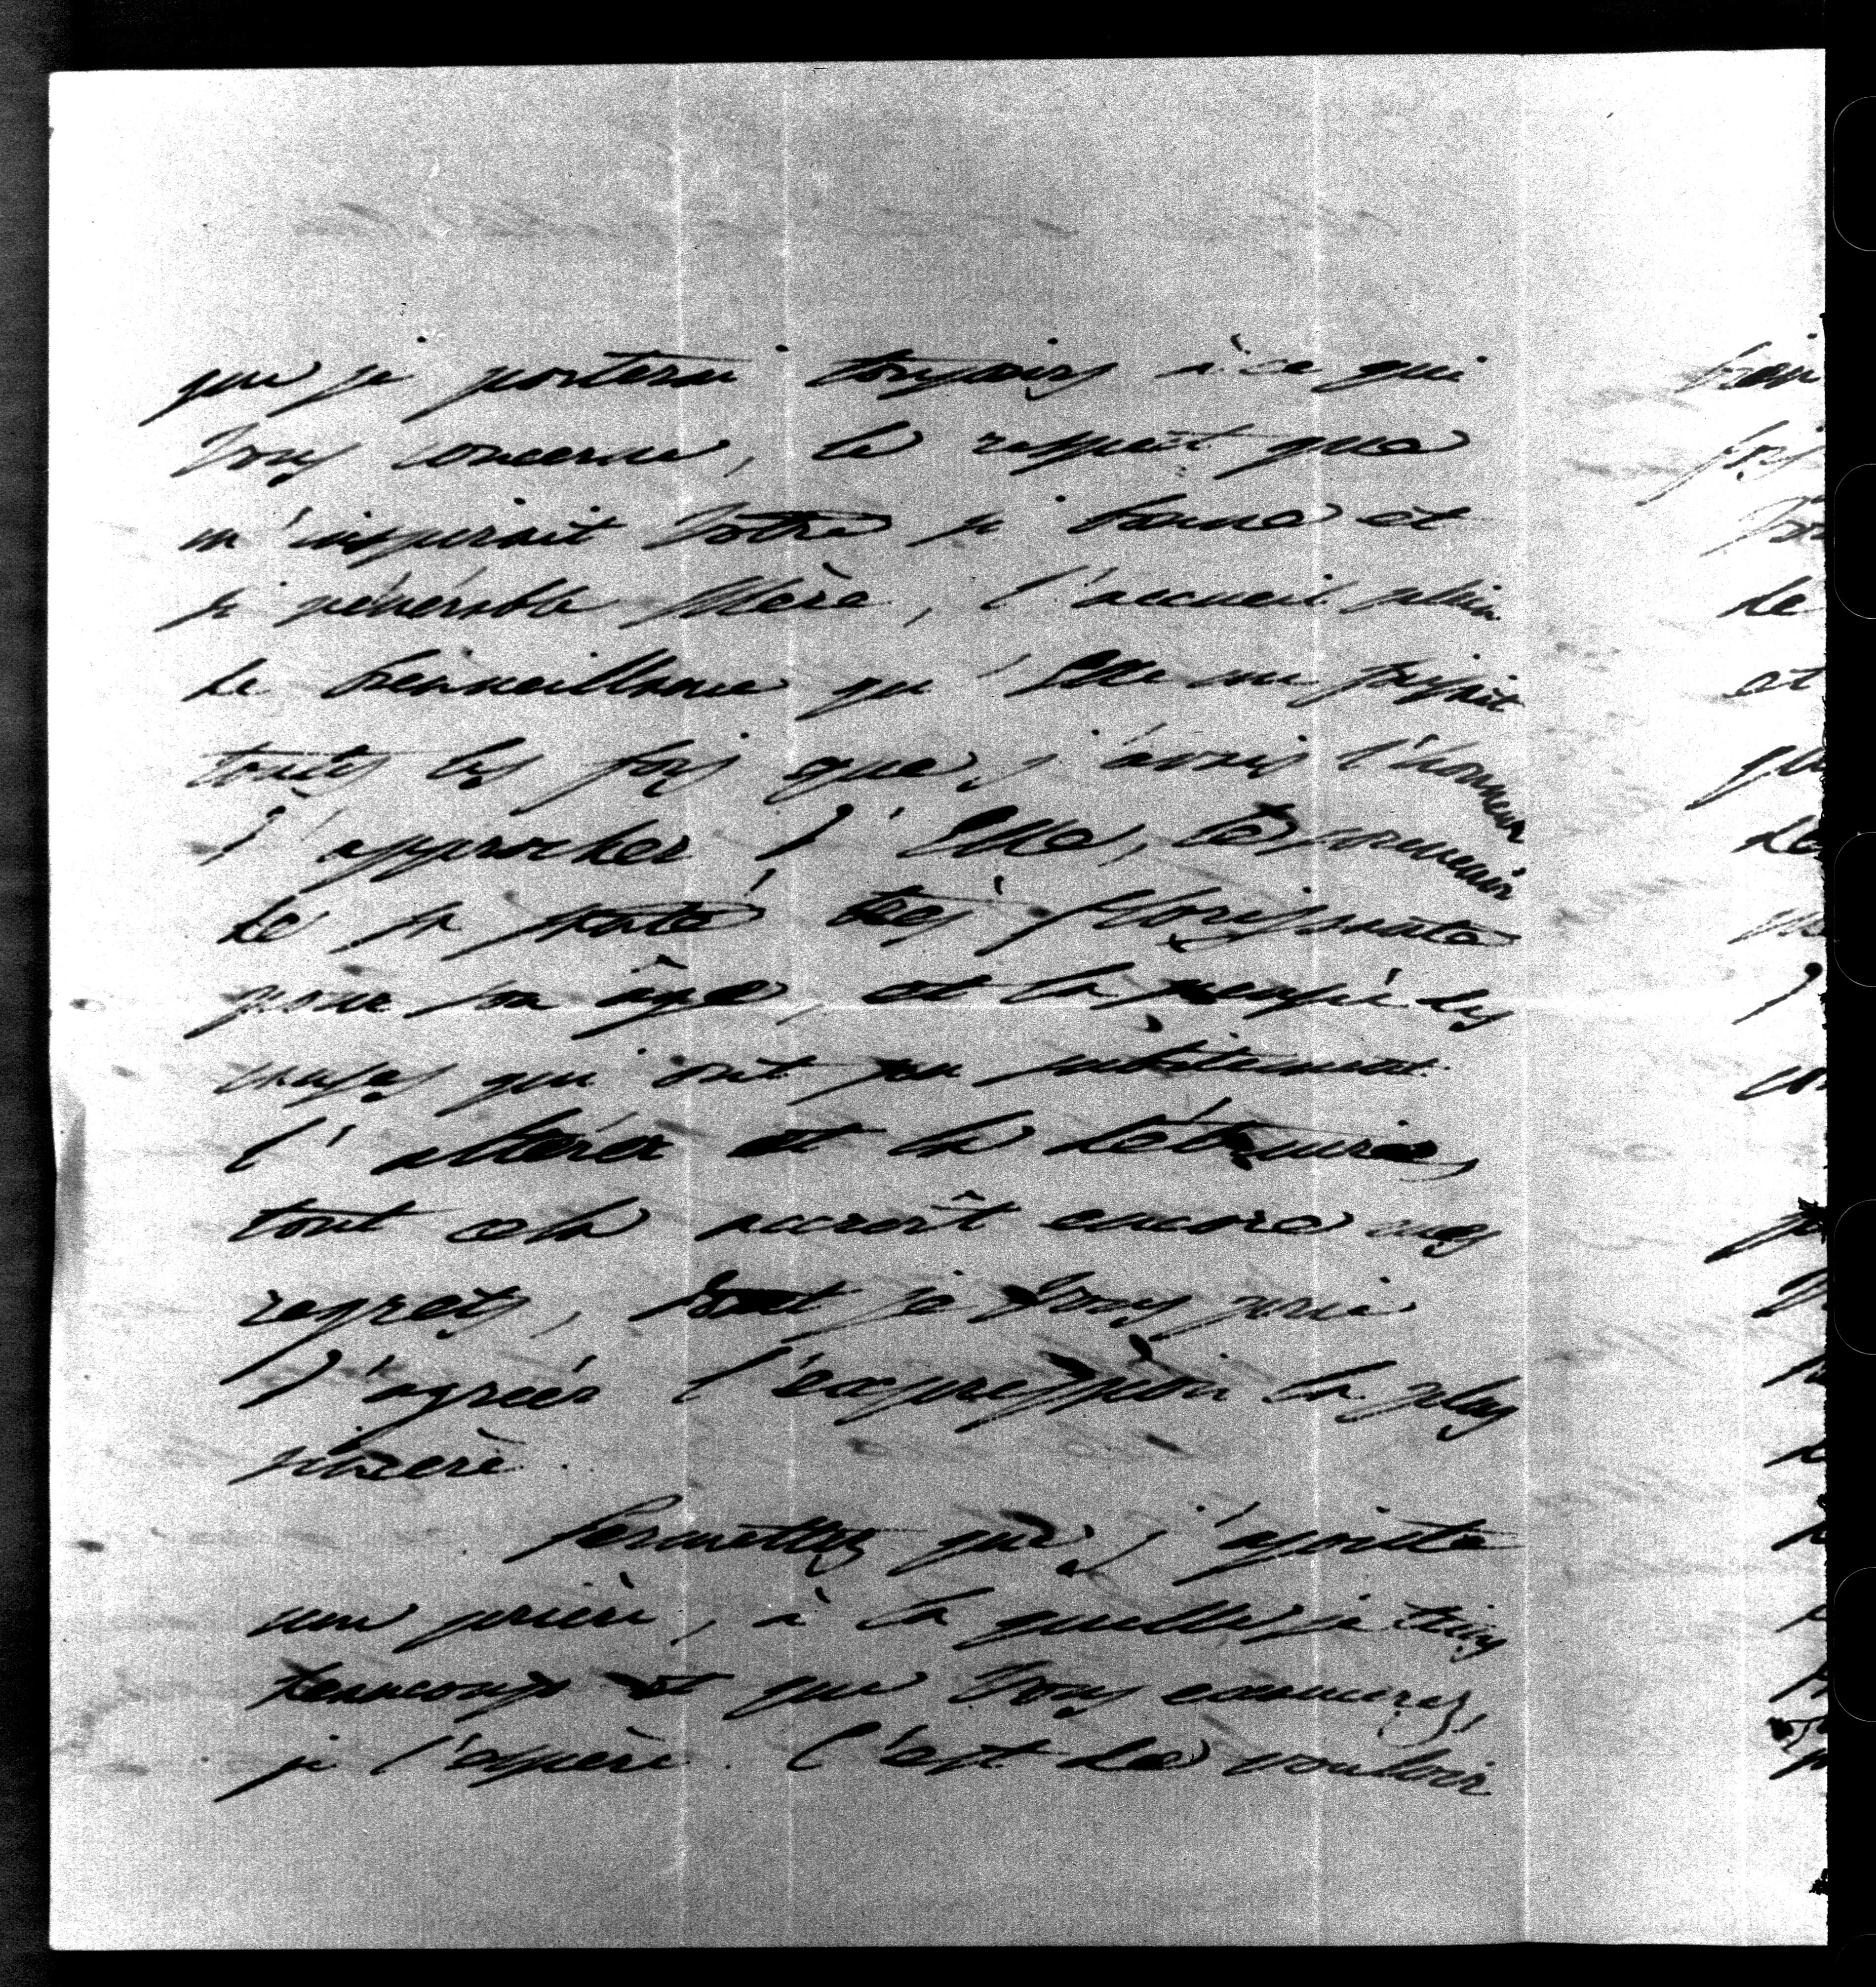 que je porterai toujours à ce qui
Vous concerne, le respect que
m'inspirait Votre si bonne et
si vénérable Mère, l'accueil plein
de bienveillance qu'Elle me faisait
toutes les fois que j'avais l'honneur
d'approcher d'Elle, le souvenir
de sa santé très florissante
pour son âge, et la pensée des
causes qui ont pu subitement
l'altérer et la détruire,
tout cela accroît encore mes
regrets, dont je Vous prie
d'agréer l'expression la plus
sincère.
Permettez que j'ajoute
une prière, à la quelle je tiens
beaucoup et que Vous exaucerez,
je l'espère. C'est de vouloir
de
et